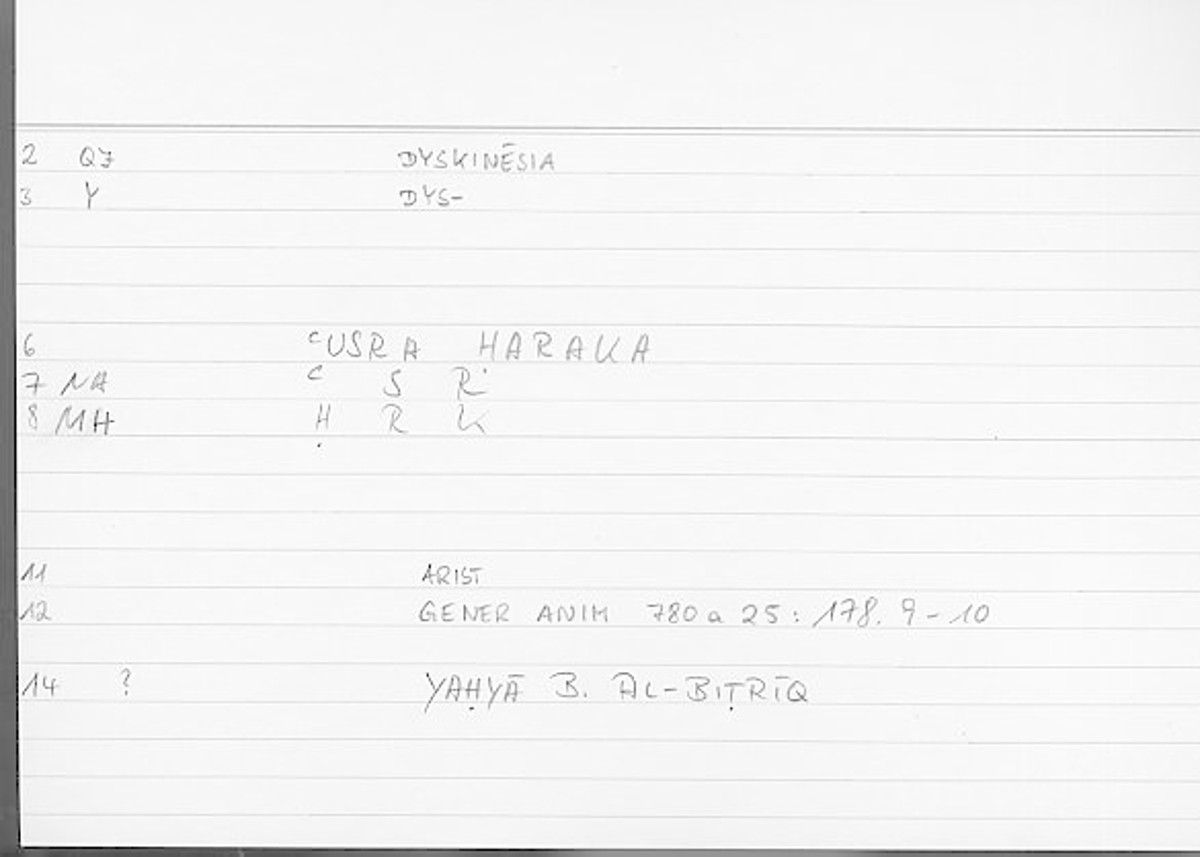 2 QZ DYSKINĒSIA
3 Y DYS-
6 ᶜUSRA HARAKA
7 NA ᶜ S R
8 MH Ḥ R K
11 ARIST
12 GENER ANIM 780a 25: 178. 9-10
14 ? YAḤYĀ B. AL-BIṬRĪQ